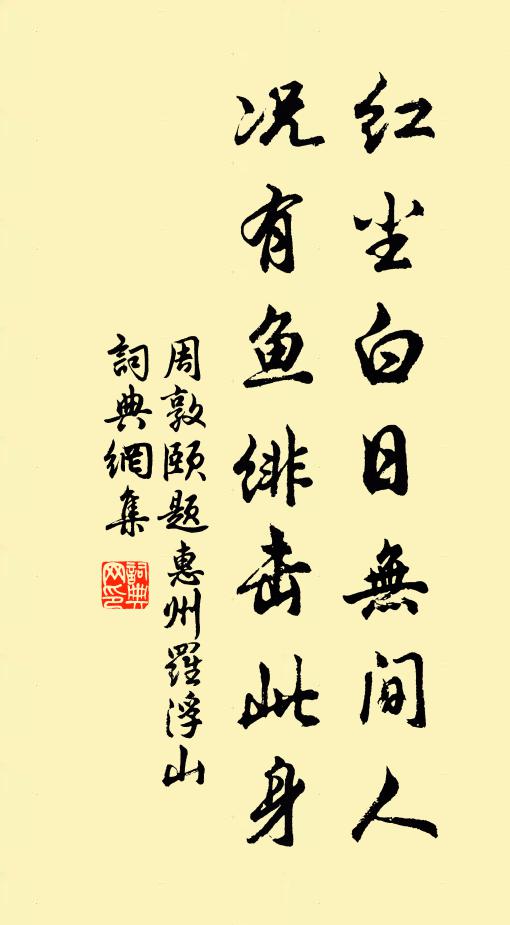 红尘白日無间人
况有鱼绯击此身
周敦颐题惠州羅浮山
詞典網集
詞典
网印